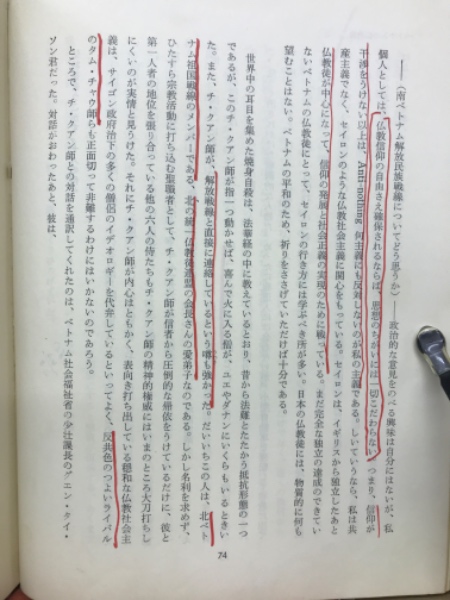 ――（南ベトナム解放民族戦線についてどう思うか）――政治的な意見をのべる興味は自分にはないが、私
個人としては、仏教信仰の自由さえ確保されるならば、思想のちがいには一切こだわらない。つまり、信仰が
干渉をうけない以上は、Anti-nothing 何主義にも反対しないのが私の主義である。しいていうなら、私は共
産主義でなく、セイロンのような仏教社会主義に関心をもっている。セイロンは、イギリスから独立したあと
仏教徒が中心になって、信仰の発展と社会正義の実現のために戦っている。まだ完全な独立の達成のできてい
ないベトナムの仏教徒にとって、セイロンの行き方には学ぶべき所が多い。日本の仏教徒には、物質的に何も
望むことはない。ベトナムの平和のため、祈りをささげていただけば十分である。
世界中の耳目を集めた焼身自殺は、法華経の中に教えているとおり、昔から法難とたたかう抵抗形態の一つ
であるが、このチ・クアン師が指一つ動かせば、喜んで火に入る僧が、ユエやダナンにいくらもいるときい
た。また、チ・クアン師が、解放戦線と直接に連絡しているという噂も強かった。だいいちこの人は、北ベト
ナム祖国戦線のメンバーである、北の統一仏教徒連盟の会長さんの愛弟子なのである。しかし名利を求めず、
ひたすら宗教活動に打ち込む聖職者として、チ・クアン師が信者から圧倒的な帰依をうけているだけに、彼と
第一人者の地位を張り合っている他の六人の侍たちもチ・クアン師の精神的権威にはいまのところ大刀打ちし
にくいのが実情と見うけた。それにチ・クアン師が内心はともかく、表向き打ち出している穏和な仏教社会主
義は、サイゴン政府治下の多くの僧侶のイデオロギーを代弁しているといってよく、反共色のつよいライバル
のタム・チャウ師らも正面切って非難するわけにはいかないのであろう。
ところで、チ・クアン師との対話を通訳してくれたのは、ベトナム社会福祉省の少壮課長のグエン・クイ・
ソン君だった。対話がおわったあと、彼は、
74